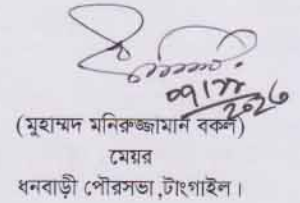 (মুহাম্মদ মনিরুজ্জামান বকল)
মেয়র
ধনবাড়ী পৌরসভা,টাংগাইল।